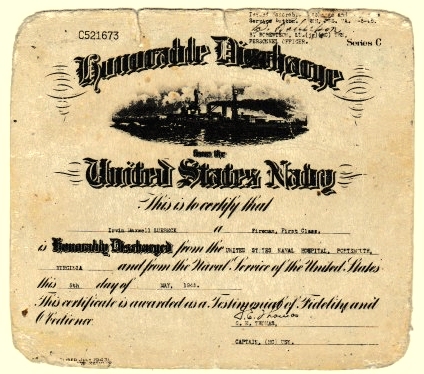 C521673
Service Button
PERSONNEL OFFICER.
Series C
Honorable Discharge
from the
United States Navy
This is to certify that
Irwin Maxwell a Fireman, First Class,
is Honorably Discharged from the UNITED STATES NAVAL HOSPITAL, PORTSMOUTH,
VIRGINIA and from the Naval Service of the United States
this 8th day of MAY, 1945.
This certificate is awarded as a Testimonial of Fidelity and
Obedience.
CAPTAIN, (MC) USN.